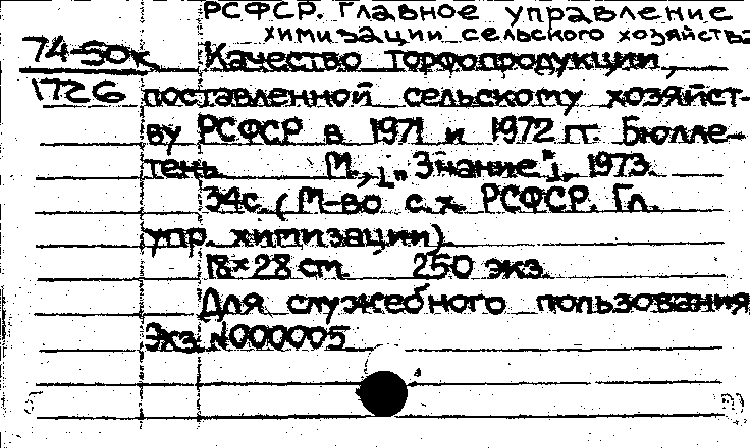 РСФСР. Главное управление
химизации сельского хозяйства
74-50к
Качество торфопродукции,
1726
поставленной сельскому хозяйст-
ву РСФСР в 1971 и 1972 гг. Бюлле-
тень. М., "Знание", 1973.
34с. (М-во с.х. РСФСР. Гл.
упр. химизации).
18×28 cm. 250 экз.
Для служебного пользования
Экз. N000005